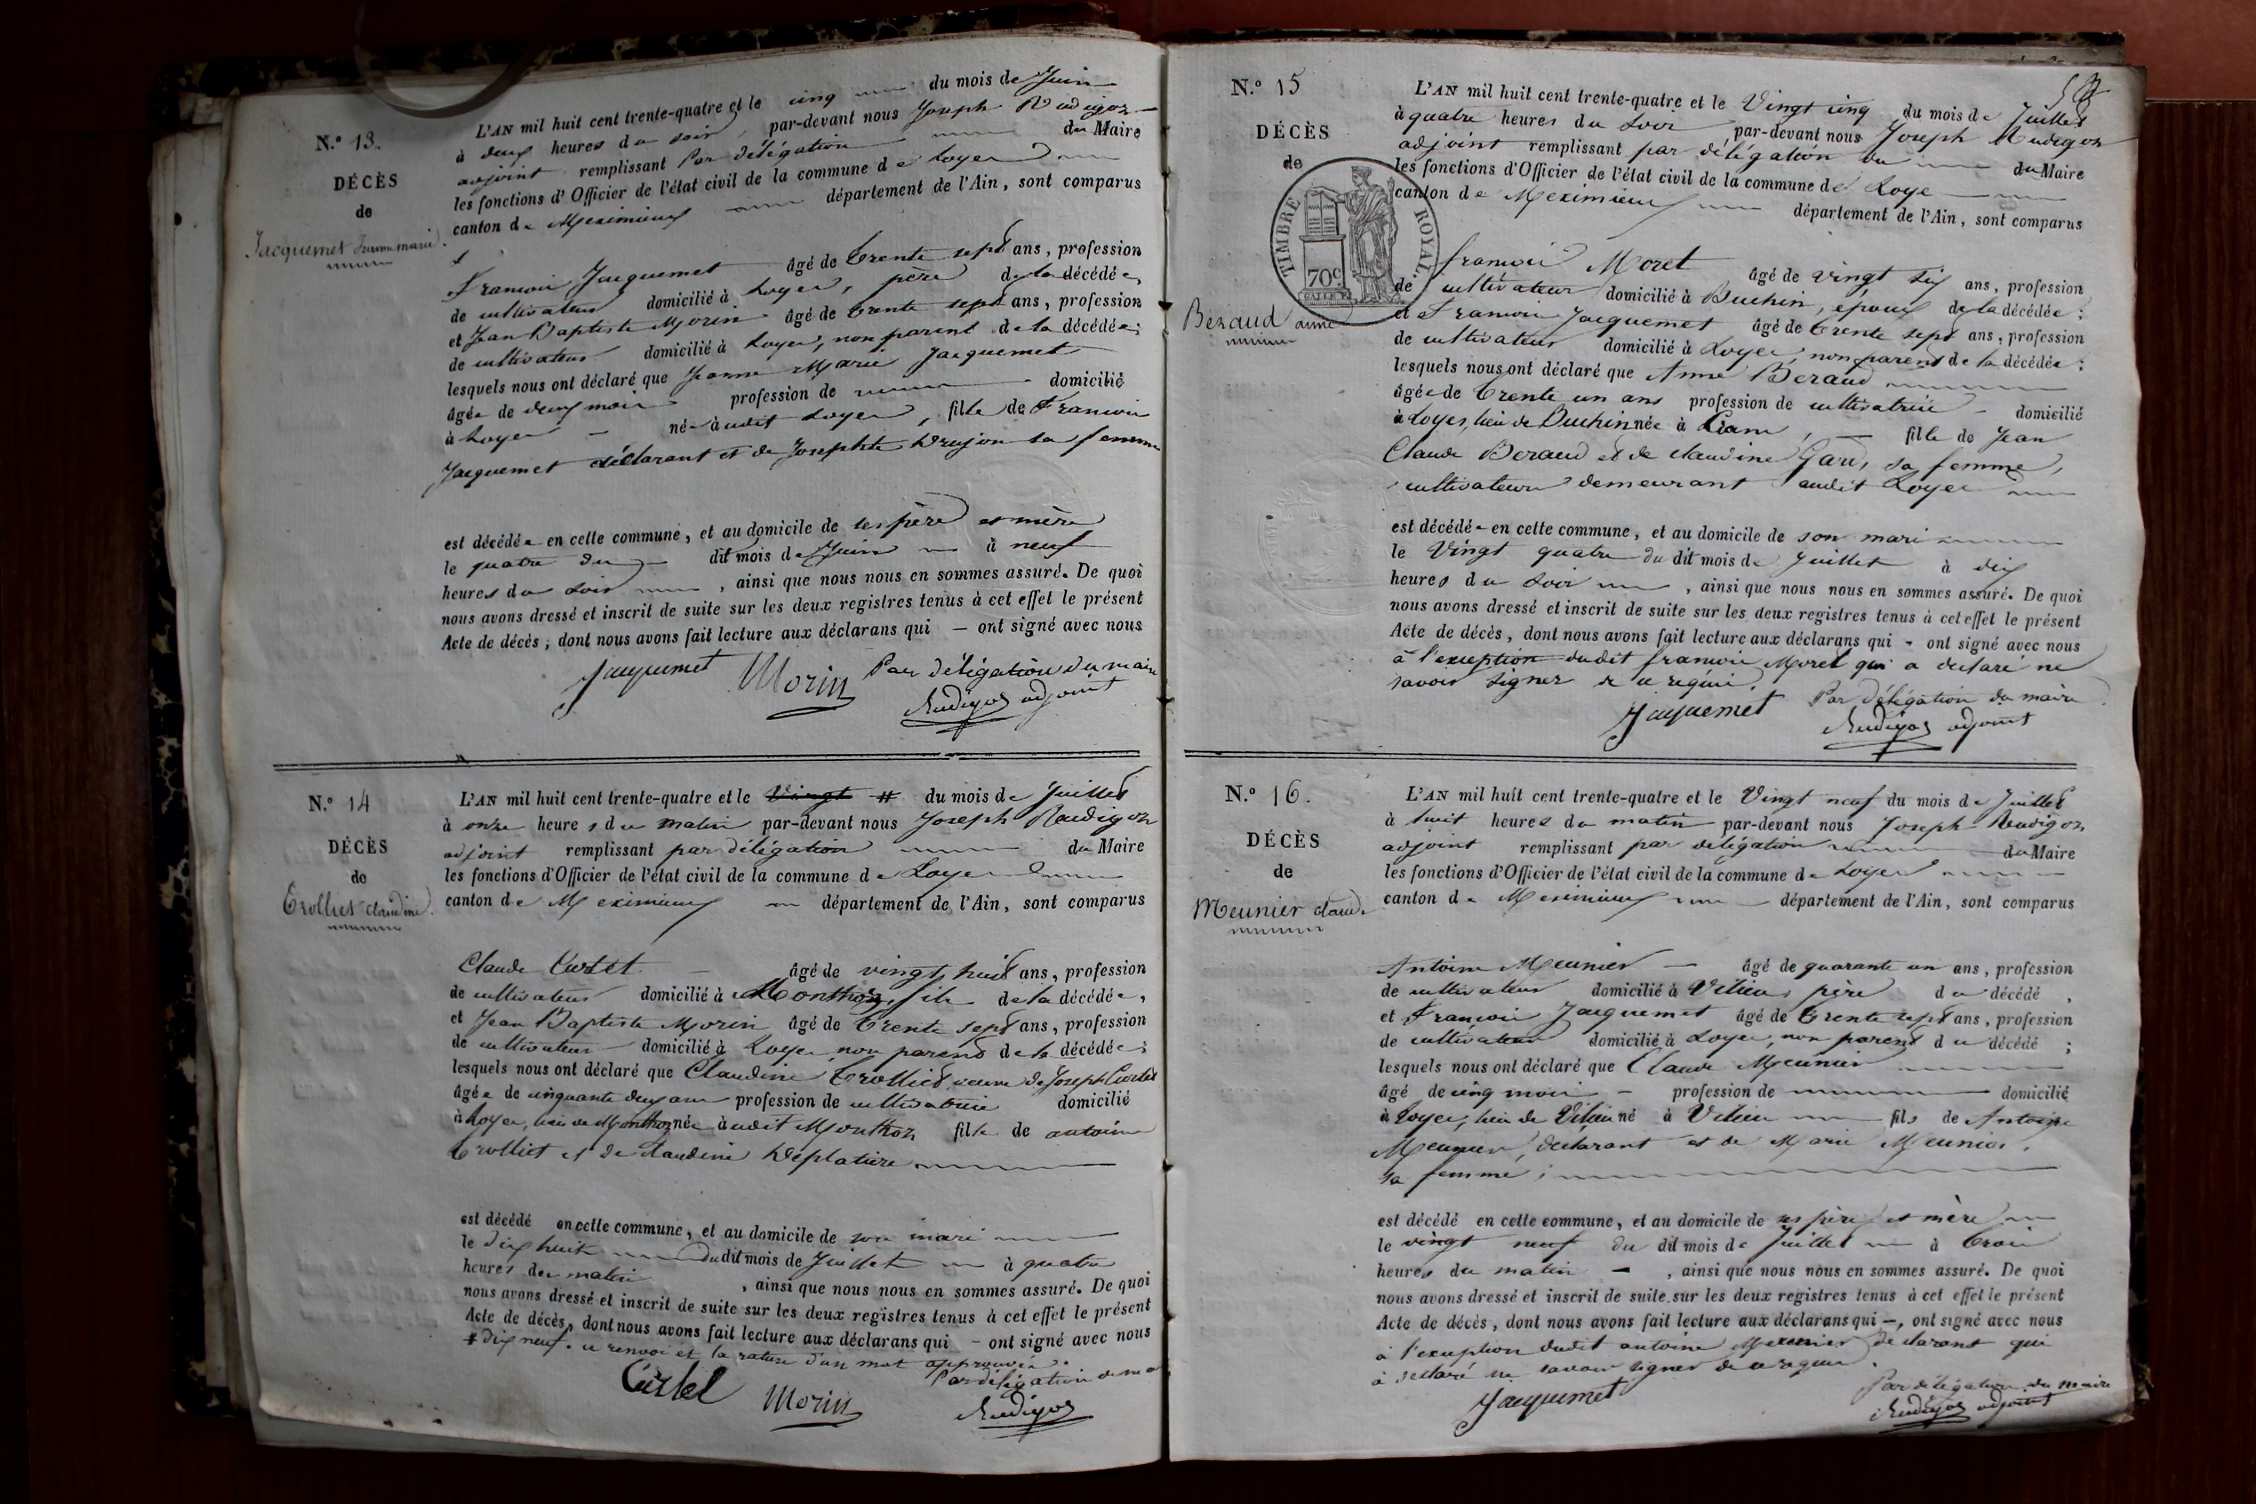 N.º 13.
DÉCÈS
de
Jacquemet Jeanne marie
L'AN mil huit cent trente-quatre et le cinq du mois de Juin
à deux heures du soir, par-devant nous Joseph Rudigoz
adjoint remplissant Par délégation du Maire
les fonctions d'Officier de l'état civil de la commune de Loyes
canton de Meximieux département de l'Ain, sont comparus
François Jacquemet âgé de trente sept ans, profession
de cultivateur domicilié à Loyes, père de la décédée,
et Jean Baptiste Morin âgé de trente sept ans, profession
de cultivateur domicilié à Loyes, non parent de la décédée;
lesquels nous ont déclaré que Jeanne Marie Jacquemet
âgée de deux mois profession de domicilié
à Loyes né à udit Loyes, fille de François
Jacquemet déclarant et de Josephte Drujon sa femme
est décédée en cette commune, et au domicile de ses père et mère
le quatre du dit mois de Juin à neuf
heures du soir, ainsi que nous nous en sommes assuré. De quoi
nous avons dressé et inscrit de suite sur les deux registres tenus à cet effet le présent
Acte de décès, dont nous avons fait lecture aux déclarans qui — ont signé avec nous
Jacquemet Morin Par délégation du maire
Rudigoz adjoint
N.º 14
DÉCÈS
de
Trolliet claudine.
L'AN mil huit cent trente-quatre et le Vingt # du mois de Juillet
à onze heures du matin par-devant nous Joseph Rudigoz
adjoint remplissant par délégation du Maire
les fonctions d'Officier de l'état civil de la commune de Loyes
canton de Meximieux département de l'Ain, sont comparus
Claude Curtet âgé de vingt huit ans, profession
de cultivateur domicilié à Monthoz, fils de la décédée,
et Jean Baptiste Morin âgé de trente sept ans, profession
de cultivateur domicilié à Loyes non parent de la décédée;
lesquels nous ont déclaré que Claudine Trolliet veuve de Joseph Curtet
âgée de cinquante deux ans profession de cultivatrice domicilié
à Loyes, lieu de Monthoz née à udit Monthoz fille de antoine
Trolliet et de Claudine Déplatière
est décédé en cette commune, et au domicile de son mari
le dix huit du dit mois de Juillet à quatre
heures du matin, ainsi que nous nous en sommes assuré. De quoi
nous avons dressé et inscrit de suite sur les deux registres tenus à cet effet le présent
Acte de décès, dont nous avons fait lecture aux déclarans qui — ont signé avec nous
# dix neuf. ce renvoi et la rature d'un mot approuvés.
Par délégation du
Curtet Morin Rudigoz
N.º 15
DÉCÈS
de
TIMBRE ROYAL.
70c
Beraud anne
L'AN mil huit cent trente-quatre et le Vingt cinq du mois de Juillet
à quatre heures du soir par-devant nous Joseph Rudigoz
adjoint remplissant par délégation du du Maire
les fonctions d'Officier de l'état civil de la commune de Loye
canton de Meximieux département de l'Ain, sont comparus
françois Moret âgé de vingt six ans, profession
de cultivateur domicilié à Buchin, époux de la décédée;
et François Jacquemet âgé de trente sept ans, profession
de cultivateur domicilié à Loyes, non parent de la décédée;
lesquels nous ont déclaré que Anne Beraud
âgée de trente un ans profession de cultivatrice domicilié
à Loyes, lieu de Buchin née à fille de Jean
Claude Beraud et de claudine sa femme,
cultivateurs demeurant audit Loyes
est décédée en cette commune, et au domicile de son mari
le Vingt quatre du dit mois de Juillet à dix
heures du soir, ainsi que nous nous en sommes assuré. De quoi
nous avons dressé et inscrit de suite sur les deux registres tenus à cet effet le présent
Acte de décès, dont nous avons fait lecture aux déclarans qui — ont signé avec nous
à l'exception dudit françois Moret qui a declaré ne
savoir signer de ce requi.
Jacquemet Par délégation du maire
Rudigoz adjoint
N.º 16.
DÉCÈS
de
Meunier claude
L'AN mil huit cent trente-quatre et le Vingt neuf du mois de Juillet
à huit heures du matin par-devant nous Joseph Rudigoz
adjoint remplissant par délégation du Maire
les fonctions d'Officier de l'état civil de la commune de Loyes
canton de Meximieux département de l'Ain, sont comparus
Antoine Meunier âgé de quarante un ans, profession
de cultivateur domicilié à Vilieu, père du décédé,
et François Jacquemet âgé de trente sept ans, profession
de cultivateur domicilié à Loyes, non parent du décédé;
lesquels nous ont déclaré que Claude Meunier
âgé de cinq mois profession de domicilié
à Loyes, lieu de Vilieu né à Vilieu fils de Antoine
Meunier, déclarant et de Marie Meunier,
sa femme;
est décédé en cette commune, et au domicile de ses père et mère
le vingt neuf du dit mois de Juillet à trois
heures du matin, ainsi que nous nous en sommes assuré. De quoi
nous avons dressé et inscrit de suite sur les deux registres tenus à cet effet le présent
Acte de décès, dont nous avons fait lecture aux déclarans qui —, ont signé avec nous
à l'exception dudit antoine Meunier declarant qui
a declaré ne savoir signer de ce requi.
Jacquemet Par délégation du maire
Rudigoz adjoint